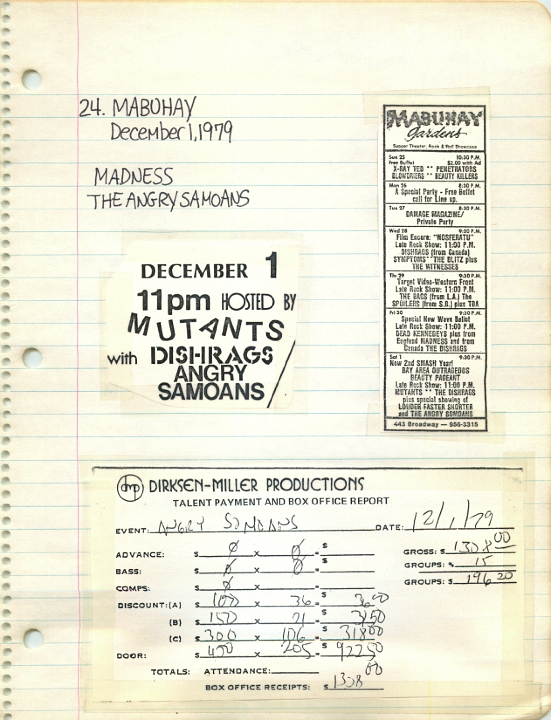 24. MABUHAY
December 1, 1979
MADNESS
THE ANGRY SAMOANS
MABUHAY
Gardens
Supper Theater, Rock & Roll Showcase
Sun 25 10:30 P.M.
Free Buffet $2.00 with Ad
X-RAY TED ** PENETRATORS
BLOWDRIERS ** BEAUTY KILLERS
Mon 26 8:30 P.M.
A Special Party - Free Buffet
call for Line up.
Tue 27 8:30 P.M.
DAMAGE MAGAZINE/
Private Party
Wed 28 9:30 P.M.
Film Encore: "NOSFERATU"
Late Rock Show: 11:00 P.M.
DISHRAGS (from Canada)
SYMPTOMS ** THE BLITZ plus
THE WITNESSES
Thr 29 9:30 P.M.
Target Video-Western Front
Late Rock Show: 11:00 P.M.
THE BAGS (from L.A.) The
SPOILERS (from S.B.) plus TBA
Fri 30 9:30 P.M.
Special New Wave Ballet
Late Rock Show: 11:00 P.M.
DEAD KENNEDEYS plus from
England MADNESS and from
Canada THE DISHRAGS
Sat 1 9:30 P.M.
Now 2nd SMASH Year!
BAY AREA OUTRAGEOUS
BEAUTY PAGEANT
Late Rock Show: 11:00 P.M.
MUTANTS ** THE DISHRAGS
plus special showing of
LOUDER FASTER SHORTER
and THE ANGRY SOMOANS
443 Broadway — 956-3315
DECEMBER 1
11pm HOSTED BY
MUTANTS
with DISHRAGS
ANGRY
SAMOANS
dmp DIRKSEN-MILLER PRODUCTIONS
TALENT PAYMENT AND BOX OFFICE REPORT
EVENT: ANGRY SOMOANS DATE: 12/1/79
ADVANCE: $ 0 x 0 = $ GROSS: $ 1308 00
BASS: $ 0 x 0 = $ GROUPS: % 15
COMPS: $ 0 GROUPS: $ 196 20
DISCOUNT: (A) $ 100 x 36 = $ 36 00
(B) $ 150 x 21 = $ 31 50
(C) $ 300 x 106 = $ 318 00
DOOR: $ 450 x 205 = $ 922 50
TOTALS: ATTENDANCE:
BOX OFFICE RECEIPTS: $ 1308 00